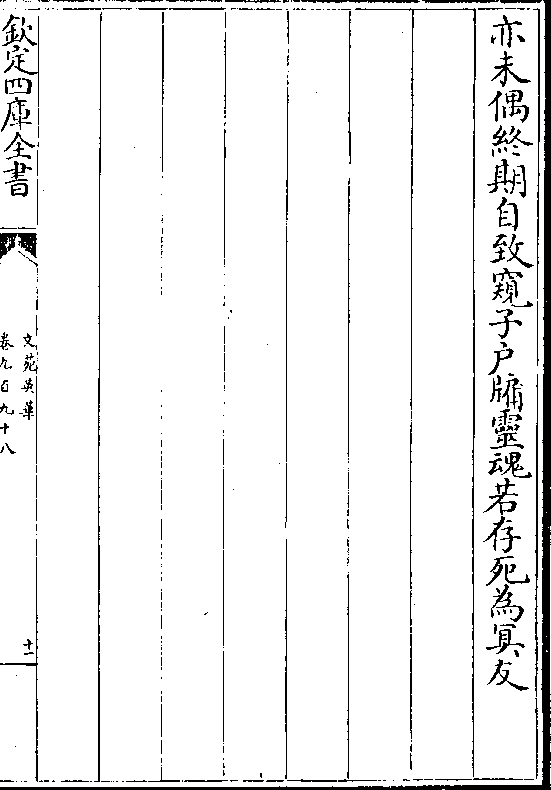 亦未偶終期自致窺子户牖靈魂若存死為冥友
欽定四庫全書
文苑英華
卷九百九十八
十一